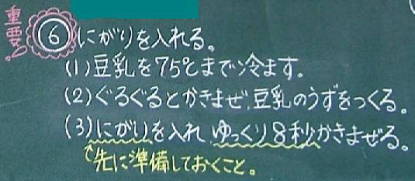 重要!
⑥ にがりを入れる。
(1) 豆乳を75℃まで冷ます。
(2) ぐるぐるとかきまぜ、豆乳のうずをつくる。
(3) にがりを入れ、ゆっくり8秒かきまぜる。
↑先に準備しておくこと。